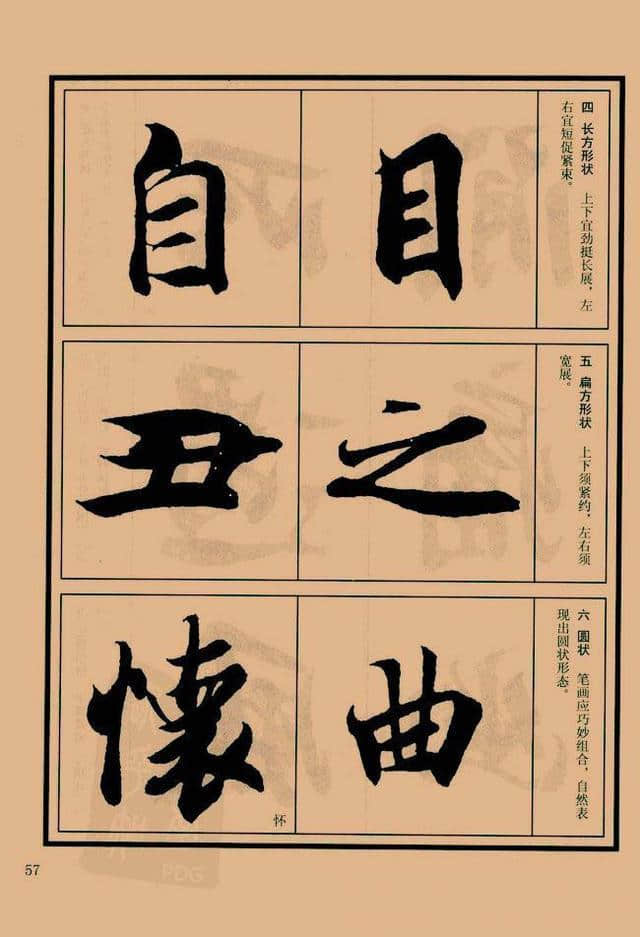 四 长方形状 上下宜劲挺长展，左
右宜短促紧束。
目
自
五 扁方形状 上下须紧约，左右须
宽展。
之
丑
六 圆状 笔画应巧妙组合，自然表
现出圆状形态。
曲
懷
怀
57
PDG